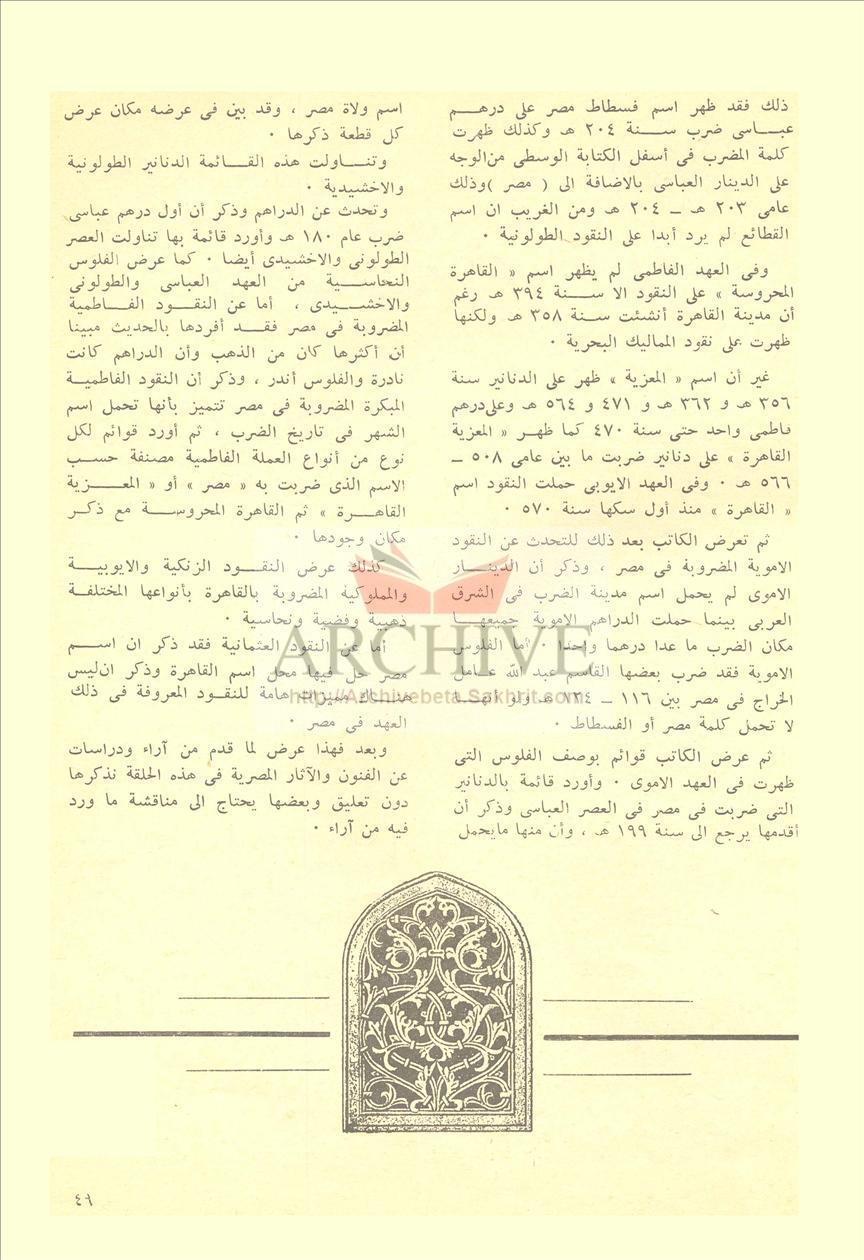 ذلك فقد ظهر اسم فسطاط مصر على درهم
عباسى ضرب سنة ٢٠٤ هـ وكذلك ظهرت
كلمة المضرب فى أسفل الكتابة الوسطى من الوجه
على الدينار العباسى بالاضافة الى ( مصر ) وذلك
عامى ٢٠٣ هـ ــ ٢٠٤ هـ ومن الغريب ان اسم
القطائع لم يرد أبدا على النقود الطولونية ٠
وفى العهد الفاطمى لم يظهر اسم « القاهرة
المحروسة » على النقود الا سنة ٣٩٤ هـ رغم
أن مدينة القاهرة أنشئت سنة ٣٥٨ هـ ولكنها
ظهرت على نقود المماليك البحرية ٠
غير أن اسم « المعزية » ظهر على الدنانير سنة
٣٥٦ هـ و ٣٦٢ هـ و ٤٧١ و ٥٦٤ هـ وعلى درهم
فاطمى واحد حتى سنة ٤٧٠ كما ظهر « المعزية
القاهرة » على دنانير ضربت ما بين عامى ٥٠٨ ــ
٥٦٦ هـ ٠ وفى العهد الايوبى حملت النقود اسم
« القاهرة » منذ أول سكها سنة ٥٧٠ ٠
ثم تعرض الكاتب بعد ذلك للتحدث عن النقود
الاموية المضروبة فى مصر ، وذكر أن الدينار
الاموى لم يحمل اسم مدينة الضرب فى الشرق
العربى بينما حملت الدراهم الاموية جميعها
مكان الضرب ما عدا درهما واحدا ٠ أما الفلوس
الاموية فقد ضرب بعضها القاسم عبد الله عامل
الخراج فى مصر بين ١١٦ ــ ١٢٤ هـ ولو أنها
لا تحمل كلمة مصر أو الفسطاط ٠
ثم عرض الكاتب قوائم بوصف الفلوس التى
ظهرت فى العهد الاموى ٠ وأورد قائمة بالدنانير
التى ضربت فى مصر فى العصر العباسى وذكر أن
أقدمها يرجع الى سنة ١٩٩ هـ ، وأن منها مايحمل
اسم ولاة مصر ، وقد بين فى عرضه مكان عرض
كل قطعة ذكرها ٠
وتناولت هذه القائمة الدنانير الطولونية
والاخشيدية ٠
وتحدث عن الدراهم وذكر أن أول درهم عباسى
ضرب عام ١٨٠ هـ وأورد قائمة بها تناولت العصر
الطولونى والاخشيدى أيضا ٠ كما عرض الفلوس
النحاسية من العهد العباسى والطولونى
والاخشيدى ، أما عن النقود الفاطمية
المضروبة فى مصر فقد أفردها بالحديث مبينا
أن أكثرها كان من الذهب وأن الدراهم كانت
نادرة والفلوس أندر ، وذكر أن النقود الفاطمية
المبكرة المضروبة فى مصر تتميز بأنها تحمل اسم
الشهر فى تاريخ الضرب ، ثم أورد قوائم لكل
نوع من أنواع العملة الفاطمية مصنفة حسب
الاسم الذى ضربت به « مصر » أو « المعزية
القاهرة » ثم القاهرة المحروسة مع ذكر
مكان وجودها ٠
كذلك عرض النقود الزنكية والايوبية
والمملوكية المضروبة بالقاهرة بأنواعها المختلفة
ذهبية وفضية ونحاسية ٠
أما عن النقود العثمانية فقد ذكر ان اسم
مصر حل فيها محل اسم القاهرة وذكر ان ليس
هناك مميزات هامة للنقود المعروفة فى ذلك
العهد فى مصر ٠
وبعد فهذا عرض لما قدم من آراء ودراسات
عن الفنون والآثار المصرية فى هذه الحلقة نذكرها
دون تعليق وبعضها يحتاج الى مناقشة ما ورد
فيه من آراء ٠
ARCHIVE
http://Archivebeta.Sakhrit.com
٤٩